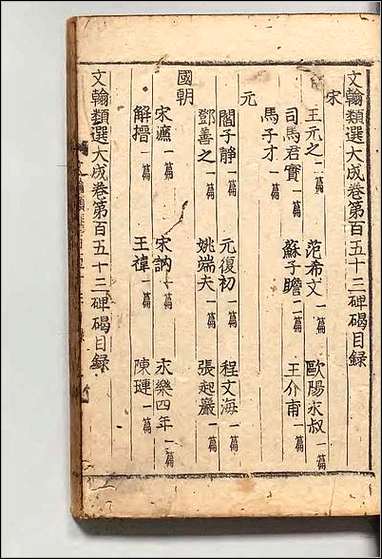 文翰類選大成卷第百五十三碑碣目録
宋
王元之一篇 范希文一篇 歐陽永叔一篇
司馬君實一篇 蘇子瞻二篇 王介甫一篇
馬子才一篇
元
閻子靜一篇 元復初一篇 程文海一篇
鄧善之一篇 姚端夫一篇 張起巖一篇
國朝
宋濂一篇 宋訥一篇 永樂四年一篇
解搢一篇 王褘一篇 陳璉一篇
文翰類選大成卷第百五十三碑碣目録